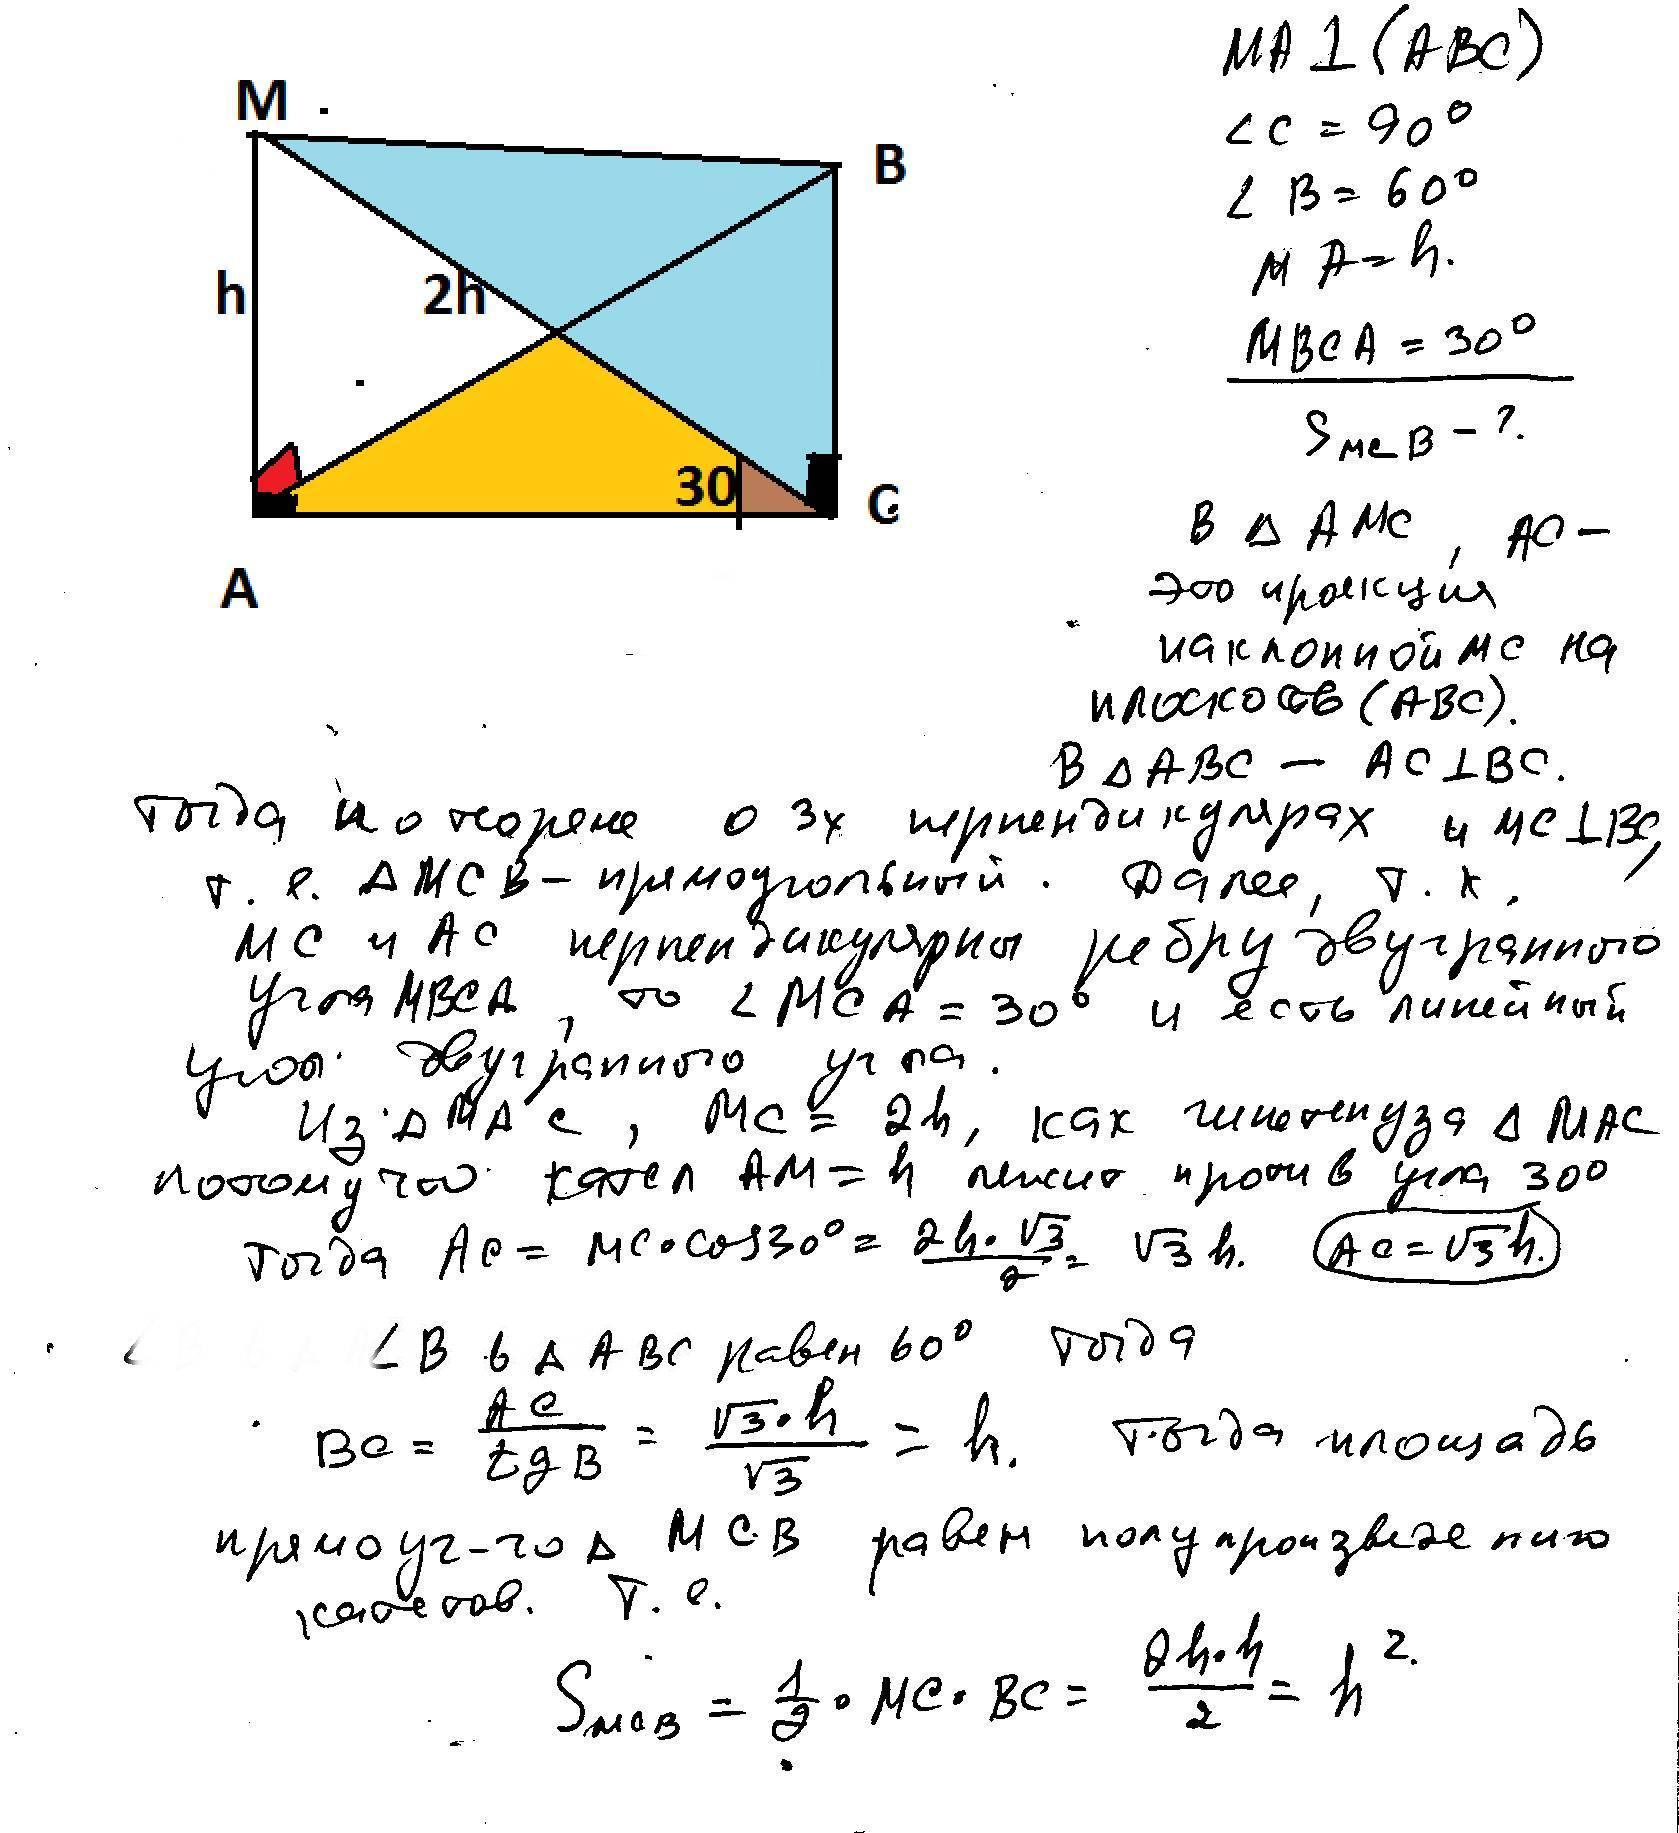 M
B
h
2h
30
C
A
MA ⊥ (ABC)
∠C = 90°
∠B = 60°
MA = h.
MBCA = 30°
S MCB - ?
В △ AMC, AC -
это проекция
наклонной MC на
плоскость (ABC).
В △ ABC - AC ⊥ BC.
Тогда по теореме о 3х перпендикулярах и MC ⊥ BC,
т. е. △ MCB - прямоугольный. Далее, т. к.
MC и AC перпендикулярны ребру двугранного
угла MBCA, то ∠MCA = 30° и есть линейный
угол двугранного угла.
Из △ MAC, MC = 2h, как гипотенуза △ MAC
потому что катет AM = h лежит против угла 30°
Тогда AC = MC · cos30° = 2h · √3 / 2 = √3 h. AC = √3 h.
∠B в △ ABC равен 60° тогда
BC = AC / tgB = √3 · h / √3 = h. Тогда площадь
прямоуг-го △ MCB равен полупроизведению
катетов. Т. е.
S MCB = 1/2 · MC · BC = 2h · h / 2 = h².